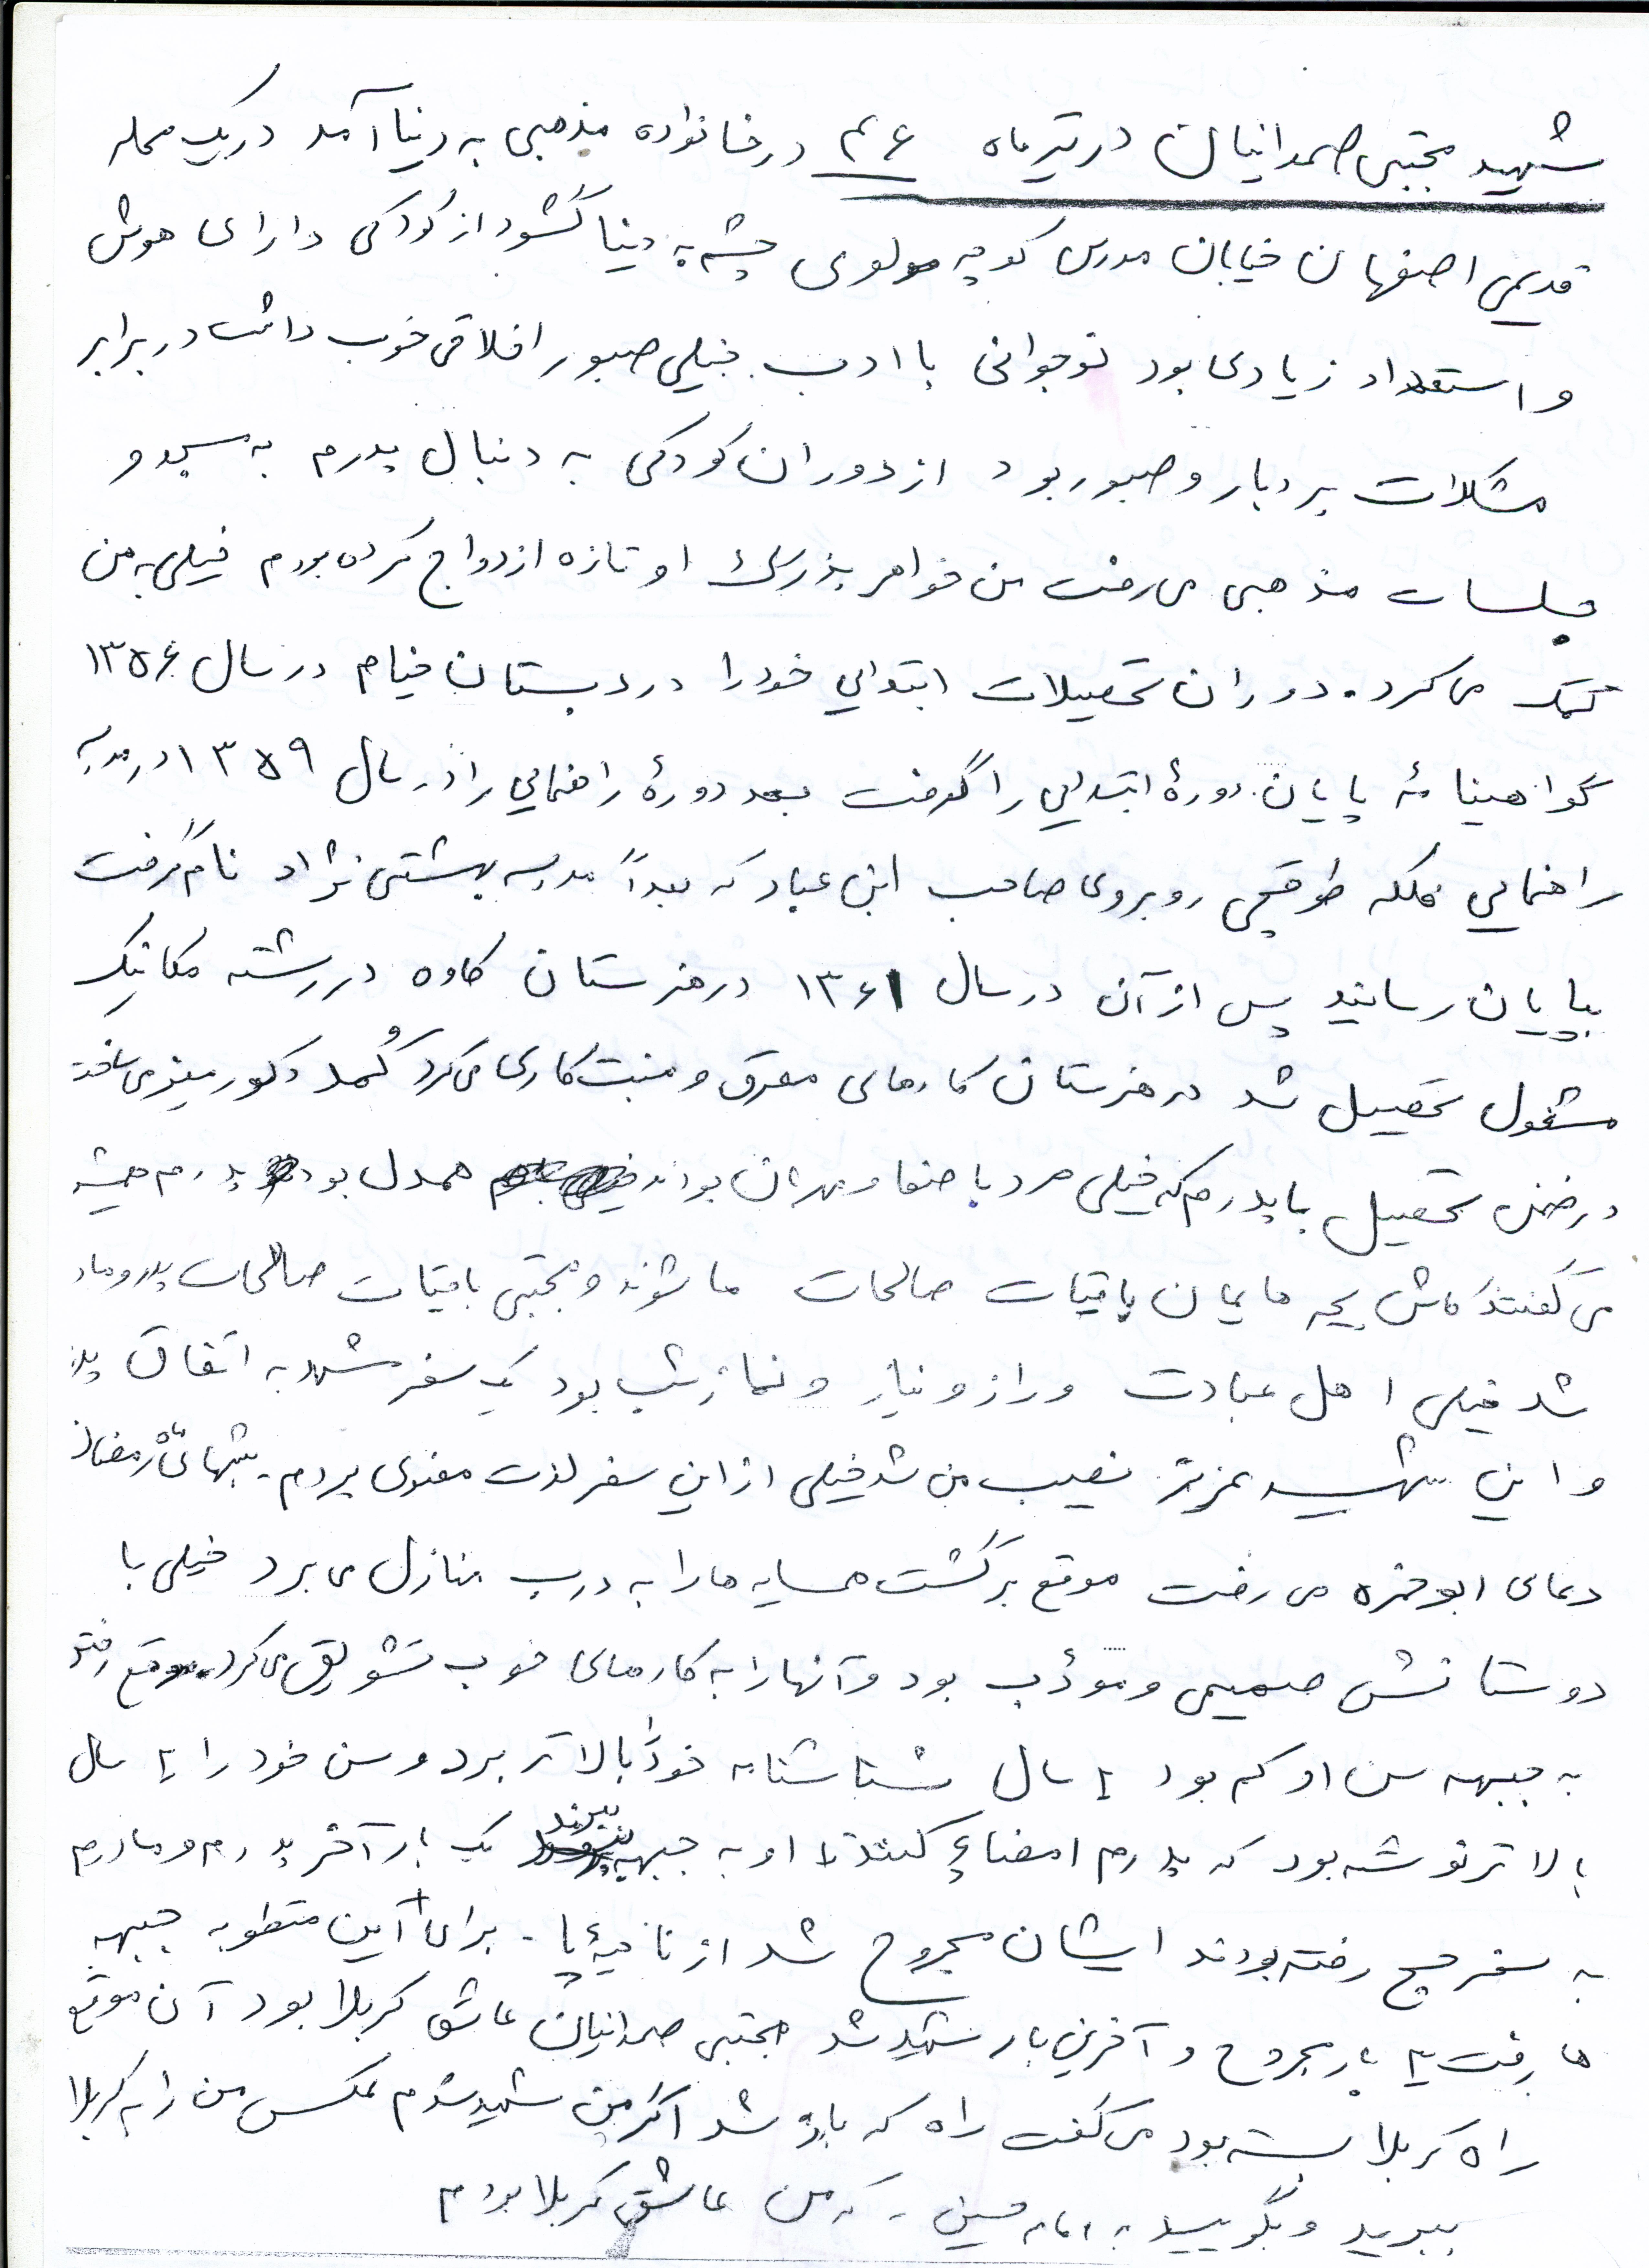 شهید مجتبی صمدانیان در تیر ماه ۴۶ در خانواده مذهبی به دنیا آمد در یک محله
قدیمی اصفهان خیابان مدرس کوچه مولوی چشم به دنیا گشود از کودکی دارای هوش
و استعداد زیادی بود نوجوانی با ادب خیلی صبور اخلاقی خوب داشت در برابر
مشکلات بردبار و صبور بود از دوران کودکی به دنبال پدرم به مسجد و
جلسات مذهبی می رفت من خواهر بزرگ او تازه ازدواج کرده بودم خیلی به من
کمک می کرد. دوران تحصیلات ابتدایی خود را در دبستان خیام در سال ۱۳۵۶
گواهینامه پایان دورهٔ ابتدایی را گرفت بعد دورهٔ راهنمایی را در سال ۱۳۵۹ در مدرسه
راهنمایی فلکه طوقچی روبروی صاحب ابن عباد که بعداً مدرسه بهشتی نژاد نام گرفت
بپایان رسانید پس از آن در سال ۱۳۶۱ در هنرستان کاوه در رشته مکانیک
مشغول تحصیل شد در هنرستان کارهای معرق و منبت کاری می کرد و کُمد دکور میز می ساخت
در ضمن تحصیل با پدرم که خیلی مرد با صفا و مهربان بودند همدل بود پدرم همیشه
می گفتند کاش بچه هایمان باقیات صالحات ما شوند و مجتبی باقیات صالحات پدر و مادر
شد خیلی اهل عبادت و راز و نیاز و نماز شب بود یک سفر مشهد به اتفاق پدر
و این شهید عزیز نصیب من شد خیلی از این سفر لذت معنوی بردم. شبهای ماه رمضان
دعای ابوحمزه می رفت موقع برگشت همسایه ها را به درب منازل می برد خیلی با
دوستانش صمیمی و مؤدب بود و آنها را به کارهای خوب تشویق می کرد. موقع رفتن
به جبهه سن او کم بود ۲ سال شناسنامه خود را بالاتر برد و سن خود را ۲ سال
بالاتر نوشته بود که پدرم امضاء کنند تا او به جبهه ببرند یک بار آخر پدرم و مادرم
به سفر حج رفته بودند ایشان مجروح شد از ناحیهٔ پا. برای آخرین منظور به جبهه
ها رفت ۲ بار مجروح و آخرین بار شهید شد مجتبی صمدانیان عاشق کربلا بود آن موقع
راه کربلا بسته بود می گفت راه که باز شد اگر من شهید شدم عکس من را به کربلا
ببرید و بگویید به امام حسین که من عاشق کربلا بودم